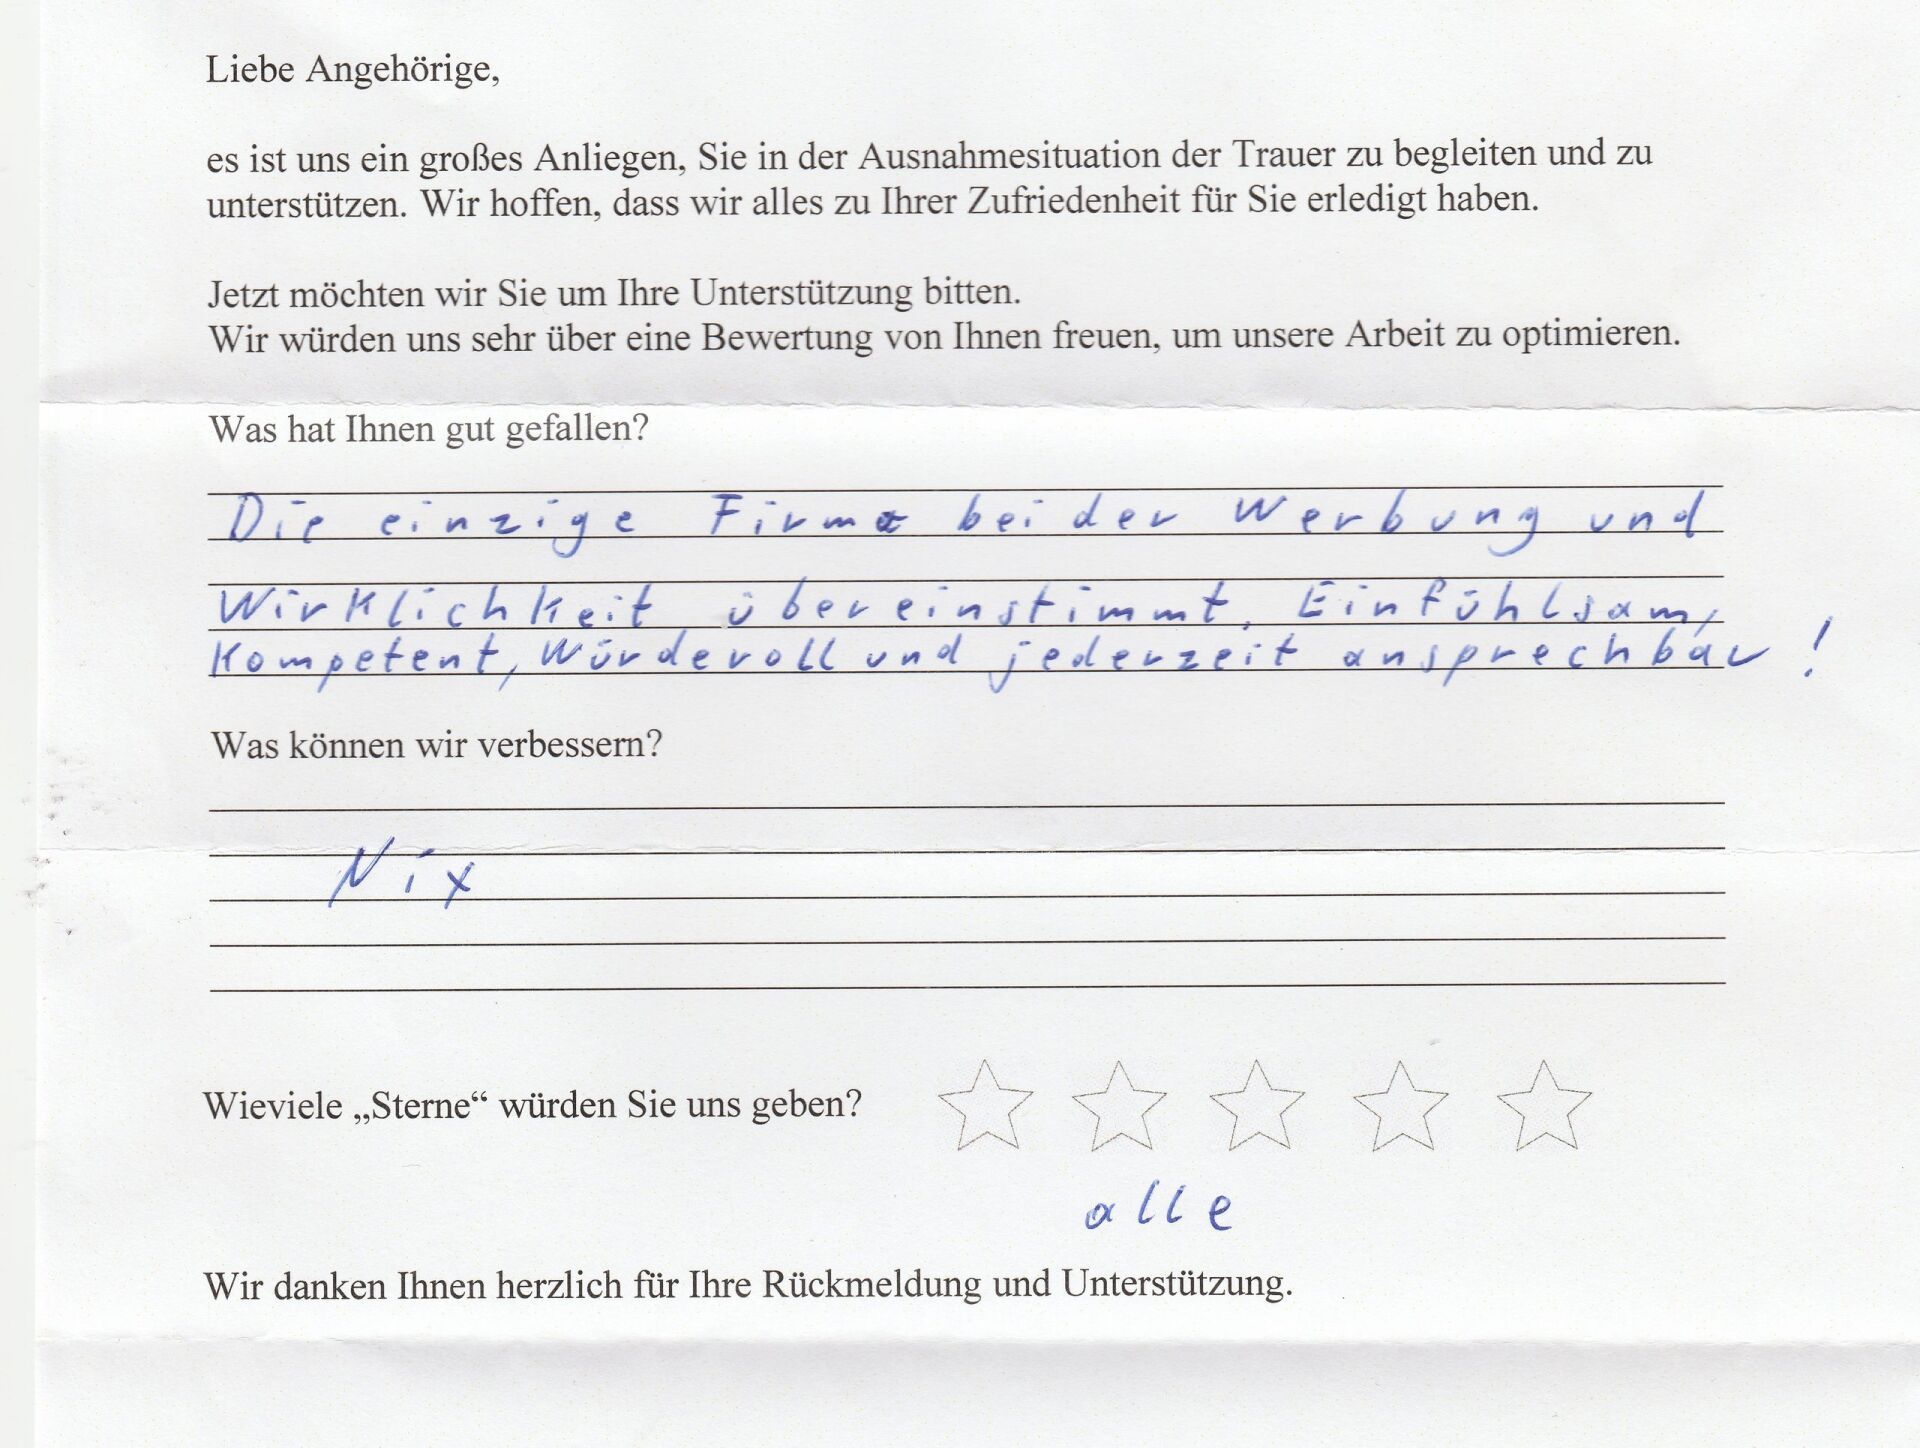 Liebe Angehörige,
es ist uns ein großes Anliegen, Sie in der Ausnahmesituation der Trauer zu begleiten und zu
unterstützen. Wir hoffen, dass wir alles zu Ihrer Zufriedenheit für Sie erledigt haben.
Jetzt möchten wir Sie um Ihre Unterstützung bitten.
Wir würden uns sehr über eine Bewertung von Ihnen freuen, um unsere Arbeit zu optimieren.
Was hat Ihnen gut gefallen?
Die einzige Firma bei der Werbung und
Wirklichkeit übereinstimmt. Einfühlsam,
Kompetent, Würdevoll und jederzeit ansprechbar!
Was können wir verbessern?
Nix
Wieviele „Sterne“ würden Sie uns geben?
alle
Wir danken Ihnen herzlich für Ihre Rückmeldung und Unterstützung.